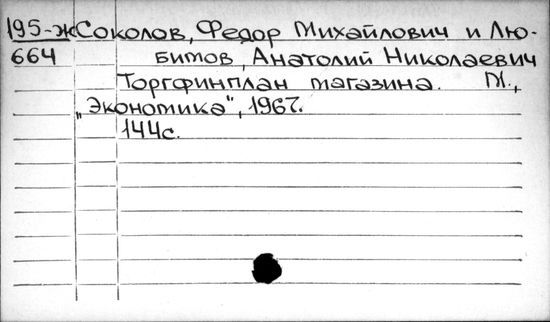 195-ж Соколов, Федор Михайлович и Лю-
664 бимов, Анатолий Николаевич
Торгфинплан магазина. М.,
„Экономика", 1967.
144с.